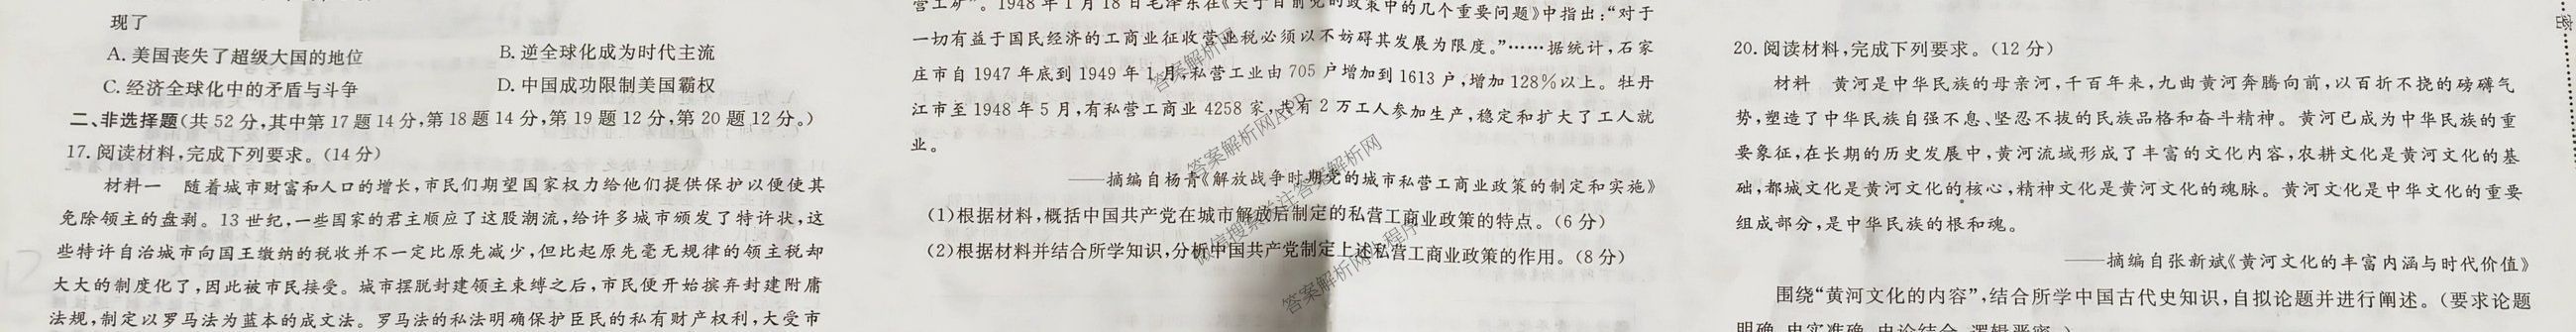 现了
A. 美国丧失了超级大国的地位
B. 逆全球化成为时代主流
C. 经济全球化中的矛盾与斗争
D. 中国成功限制美国霸权
二、非选择题(共 52 分,其中第 17 题 14 分,第 18 题 14 分,第 19 题 12 分,第 20 题 12 分。)
17. 阅读材料,完成下列要求。(14 分)
材料一 随着城市财富和人口的增长,市民们期望国家权力给他们提供保护以便使其
免除领主的盘剥。13 世纪,一些国家的君主顺应了这股潮流,给许多城市颁发了特许状,这
些特许自治城市向国王缴纳的税收并不一定比原先减少,但比起原先毫无规律的领主税却
大大的制度化了,因此被市民接受。城市摆脱封建领主束缚之后,市民便开始摈弃封建附庸
法规,制定以罗马法为蓝本的成文法。罗马法的私法明确保护臣民的私有财产权利,大受市
营工矿”。1948 年 1 月 18 日毛泽东在《关于目前党的政策中的几个重要问题》中指出:“对于
一切有益于国民经济的工商业征收营业税必须以不妨碍其发展为限度。”……据统计,石家
庄市自 1947 年底到 1949 年 1 月,私营工业由 705 户增加到 1613 户,增加 128%以上。牡丹
江市至 1948 年 5 月,有私营工商业 4258 家,共有 2 万工人参加生产,稳定和扩大了工人就
业。
——摘编自杨青《解放战争时期党的城市私营工商业政策的制定和实施》
(1)根据材料,概括中国共产党在城市解放后制定的私营工商业政策的特点。(6 分)
(2)根据材料并结合所学知识,分析中国共产党制定上述私营工商业政策的作用。(8 分)
答案解析网
答案解析网APP
微信搜索关注答案解析网
答案解析网小程序
20. 阅读材料,完成下列要求。(12 分)
材料 黄河是中华民族的母亲河,千百年来,九曲黄河奔腾向前,以百折不挠的磅礴气
势,塑造了中华民族自强不息、坚忍不拔的民族品格和奋斗精神。黄河已成为中华民族的重
要象征,在长期的历史发展中,黄河流域形成了丰富的文化内容,农耕文化是黄河文化的基
础,都城文化是黄河文化的核心,精神文化是黄河文化的魂脉。黄河文化是中华文化的重要
组成部分,是中华民族的根和魂。
——摘编自张新斌《黄河文化的丰富内涵与时代价值》
围绕“黄河文化的内容”,结合所学中国古代史知识,自拟论题并进行阐述。(要求论题
明确,史实准确,史论结合,逻辑严密。)
密